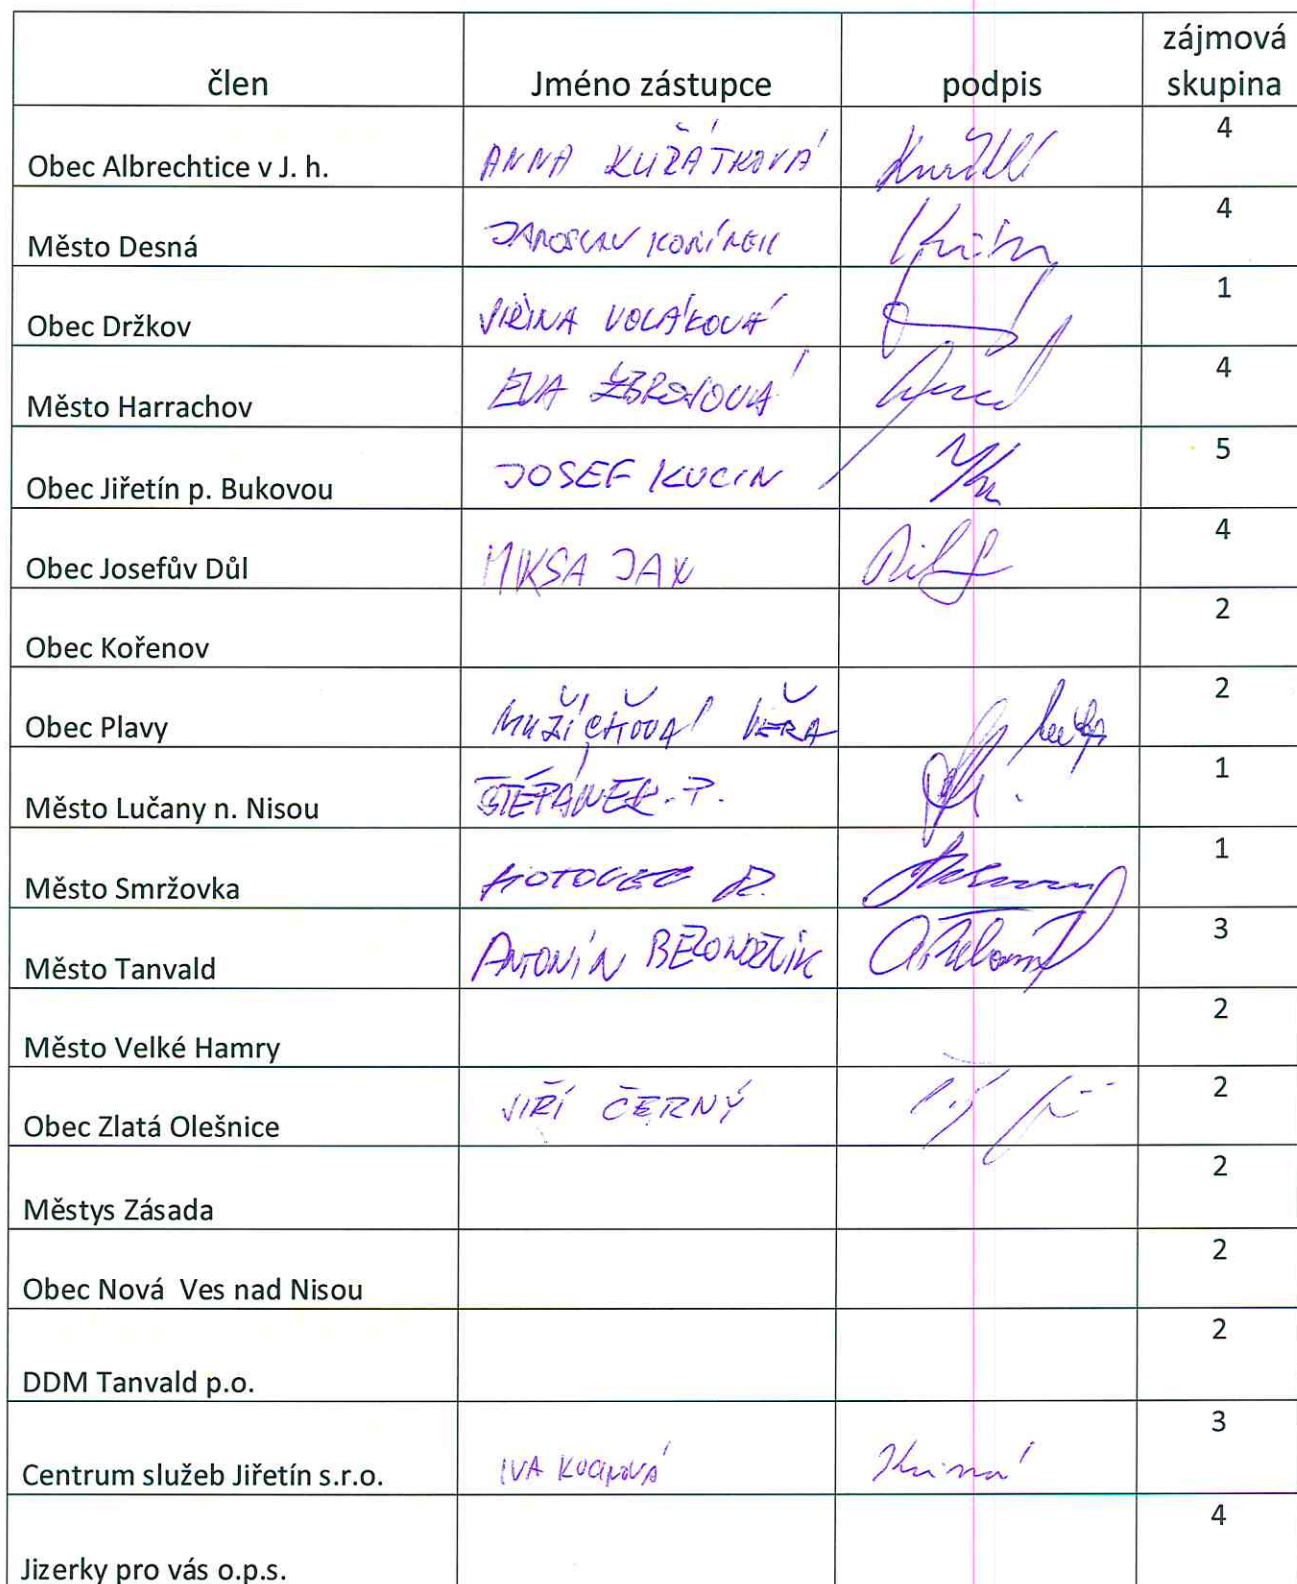 člen Jméno zástupce podpis zájmová skupina
Obec Albrechtice v J. h. ANNA KUŘÁTKOVÁ 4
Město Desná JAROSLAV KOŘÍNEK 4
Obec Držkov JIŘINA VOLÁKOVÁ 1
Město Harrachov EVA ZBROJOVÁ 4
Obec Jiřetín p. Bukovou JOSEF KUCIN 5
Obec Josefův Důl MIKSA JAX 4
Obec Kořenov 2
Obec Plavy VĚRA 2
Město Lučany n. Nisou ŠTĚPÁNEK P. 1
Město Smržovka HOTOVEC R. 1
Město Tanvald ANTONÍN 3
Město Velké Hamry 2
Obec Zlatá Olešnice JIŘÍ ČERNÝ 2
Městys Zásada 2
Obec Nová Ves nad Nisou 2
DDM Tanvald p.o. 2
Centrum služeb Jiřetín s.r.o. IVA KUCINOVÁ 3
Jizerky pro vás o.p.s. 4